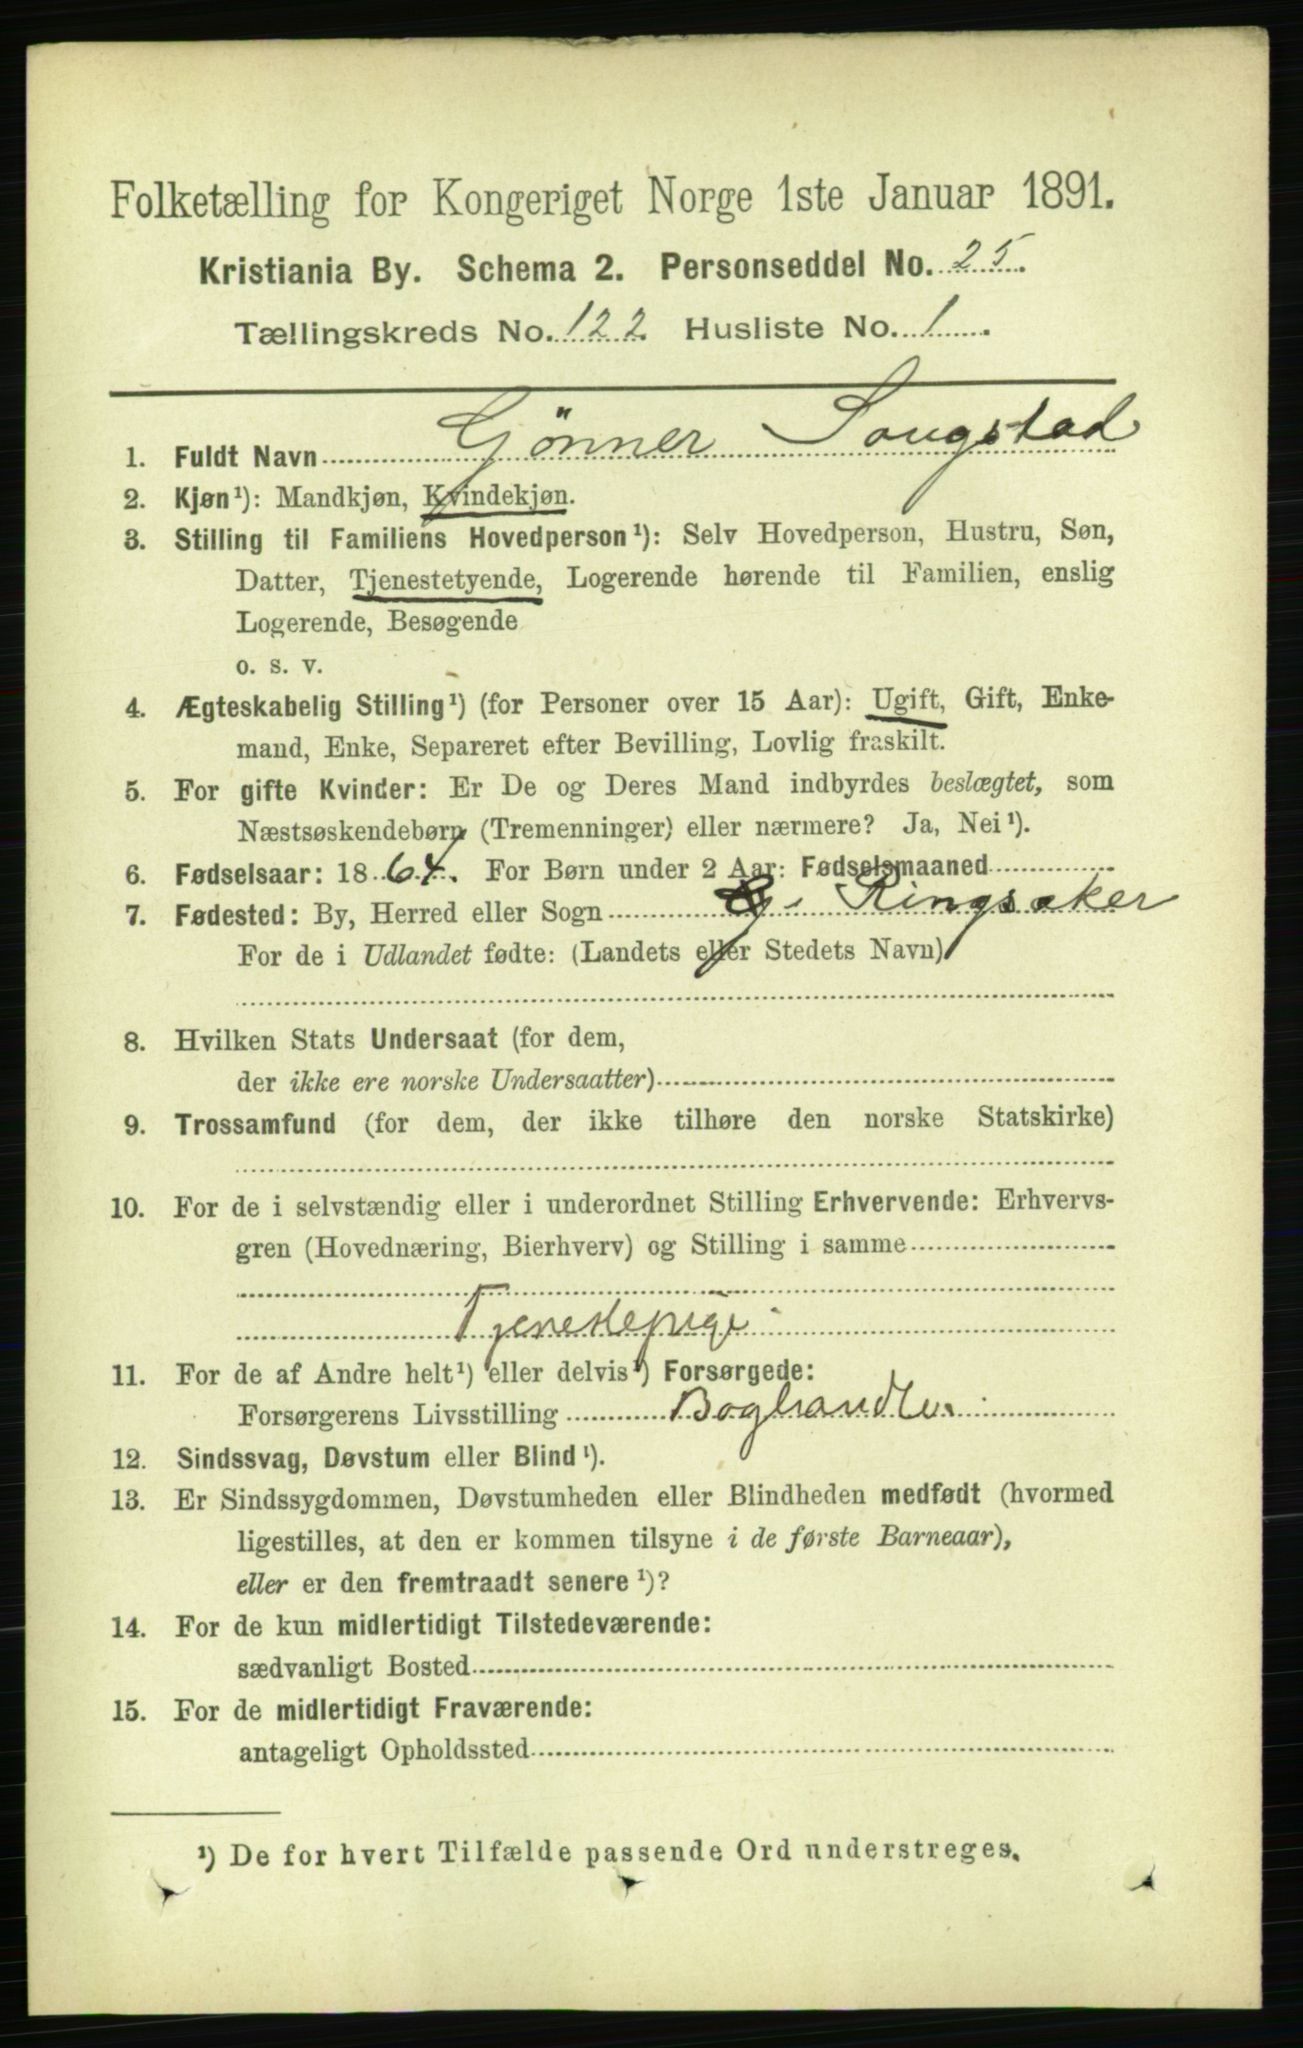 Folketælling for Kongeriget Norge 1ste Januar 1891.
Kristiania By. Schema 2. Personseddel No. 25.
Tællingskreds No. 122 Husliste No. 1.
1. Fuldt Navn Gönner Sougstad
2. Kjøn¹): Mandkjøn, Kvindekjøn.
3. Stilling til Familiens Hovedperson¹): Selv Hovedperson, Hustru, Søn,
Datter, Tjenestetyende, Logerende hørende til Familien, enslig
Logerende, Besøgende
o. s. v.
4. Ægteskabelig Stilling¹) (for Personer over 15 Aar): Ugift, Gift, Enke-
mand, Enke, Separeret efter Bevilling, Lovlig fraskilt.
5. For gifte Kvinder: Er De og Deres Mand indbyrdes beslægtet, som
Næstsøskendebørn (Tremenninger) eller nærmere? Ja, Nei¹).
6. Fødselsaar: 1864. For Børn under 2 Aar: Fødselsmaaned
7. Fødested: By, Herred eller Sogn Ringsaker
For de i Udlandet fødte: (Landets eller Stedets Navn)
8. Hvilken Stats Undersaat (for dem,
der ikke ere norske Undersaatter)
9. Trossamfund (for dem, der ikke tilhøre den norske Statskirke)
10. For de i selvstændig eller i underordnet Stilling Erhvervende: Erhvervs-
gren (Hovednæring, Bierhverv) og Stilling i samme
Tjenestepige
11. For de af Andre helt¹) eller delvis¹) Forsørgede:
Forsørgerens Livsstilling Boghandler
12. Sindssvag, Døvstum eller Blind¹).
13. Er Sindssygdommen, Døvstumheden eller Blindheden medfødt (hvormed
ligestilles, at den er kommen tilsyne i de første Barneaar),
eller er den fremtraadt senere¹)?
14. For de kun midlertidigt Tilstedeværende:
sædvanligt Bosted
15. For de midlertidigt Fraværende:
antageligt Opholdssted
¹) De for hvert Tilfælde passende Ord understreges.